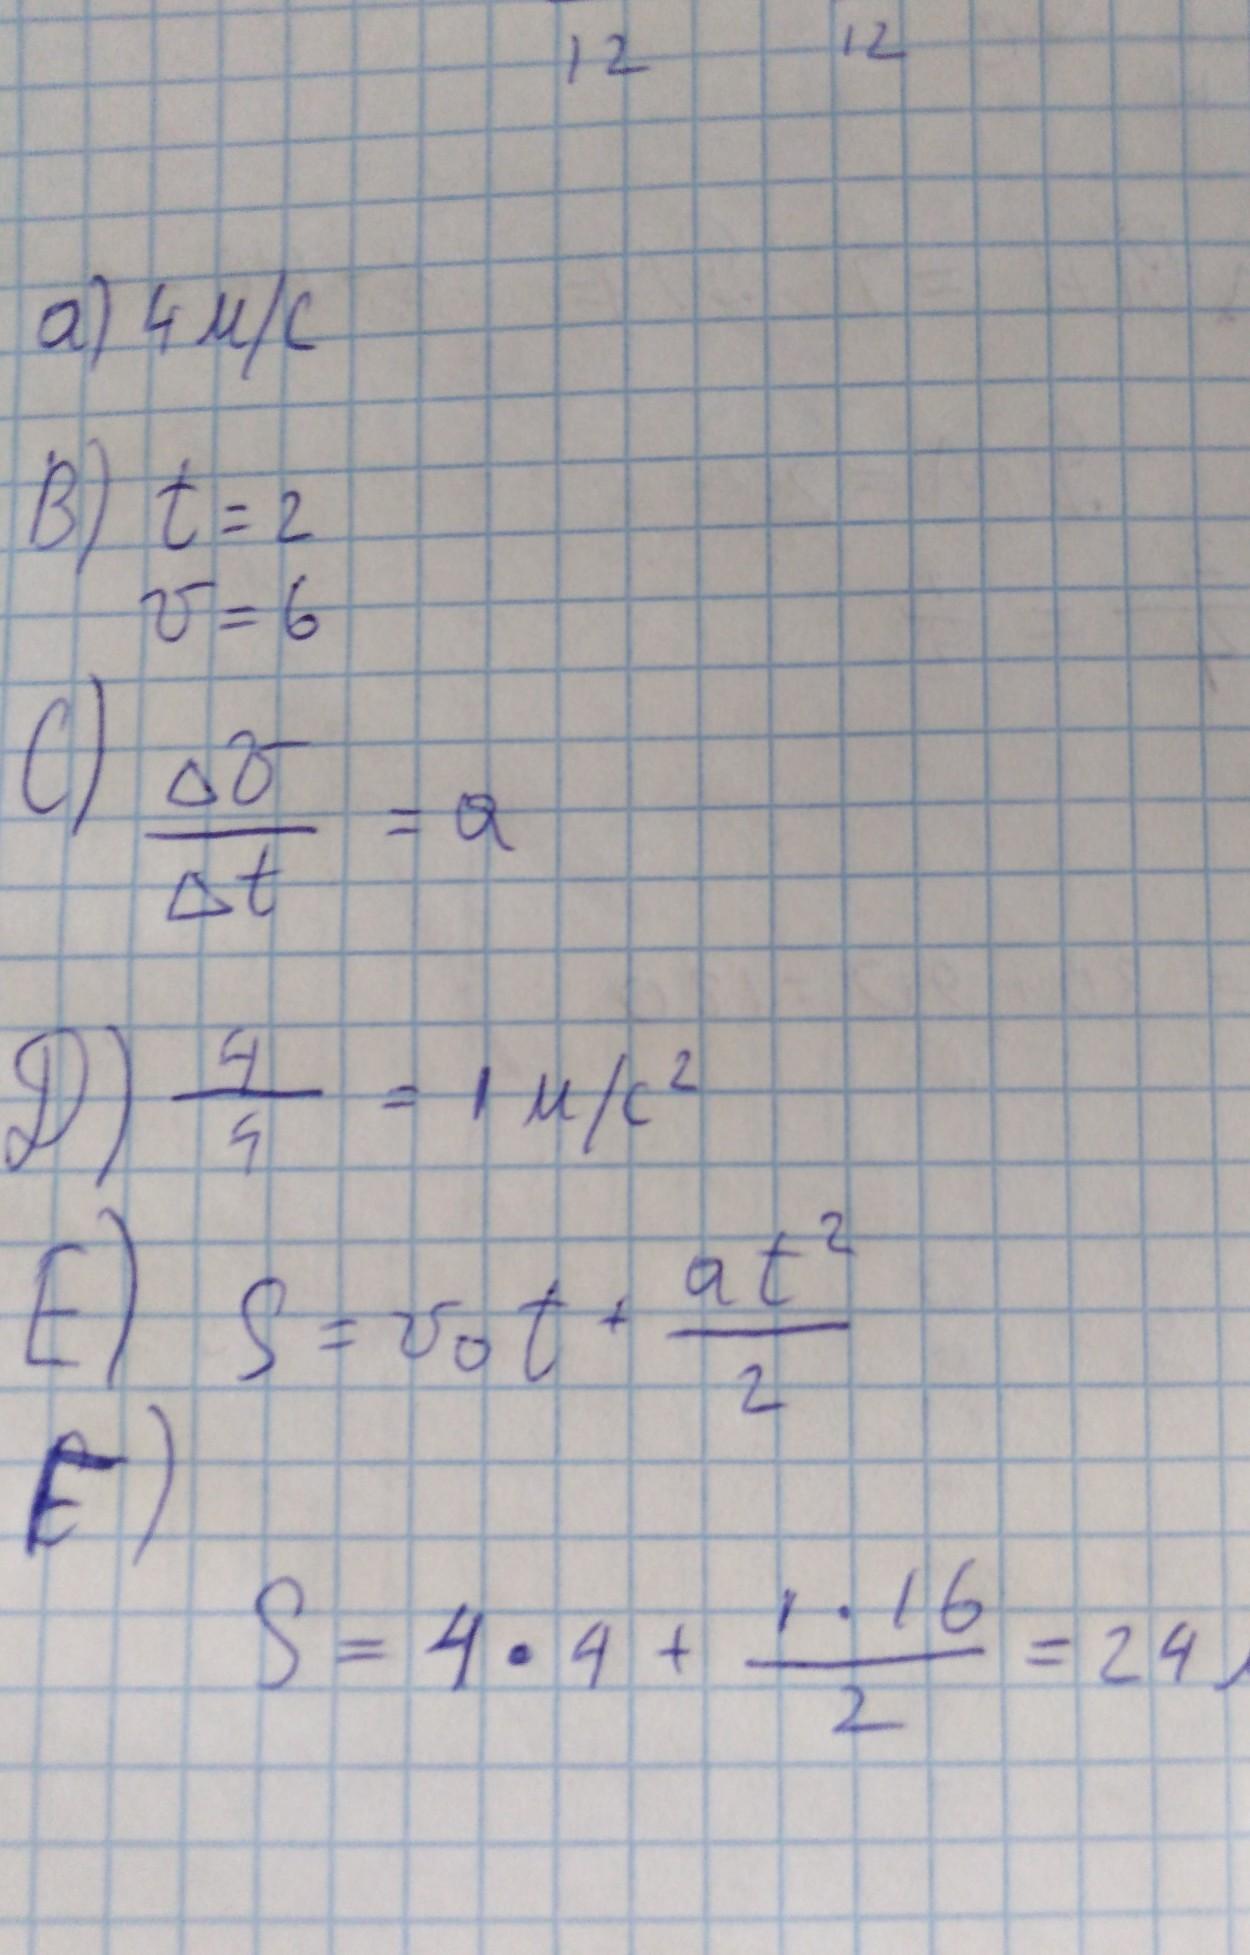 12 12
a) 4 м/с
B) t = 2
v = 6
C) Δv/Δt = a
D) 4/4 = 1 м/с²
E) S = v₀t + at²/2
F)
S = 4 • 4 + 1 · 16/2 = 24